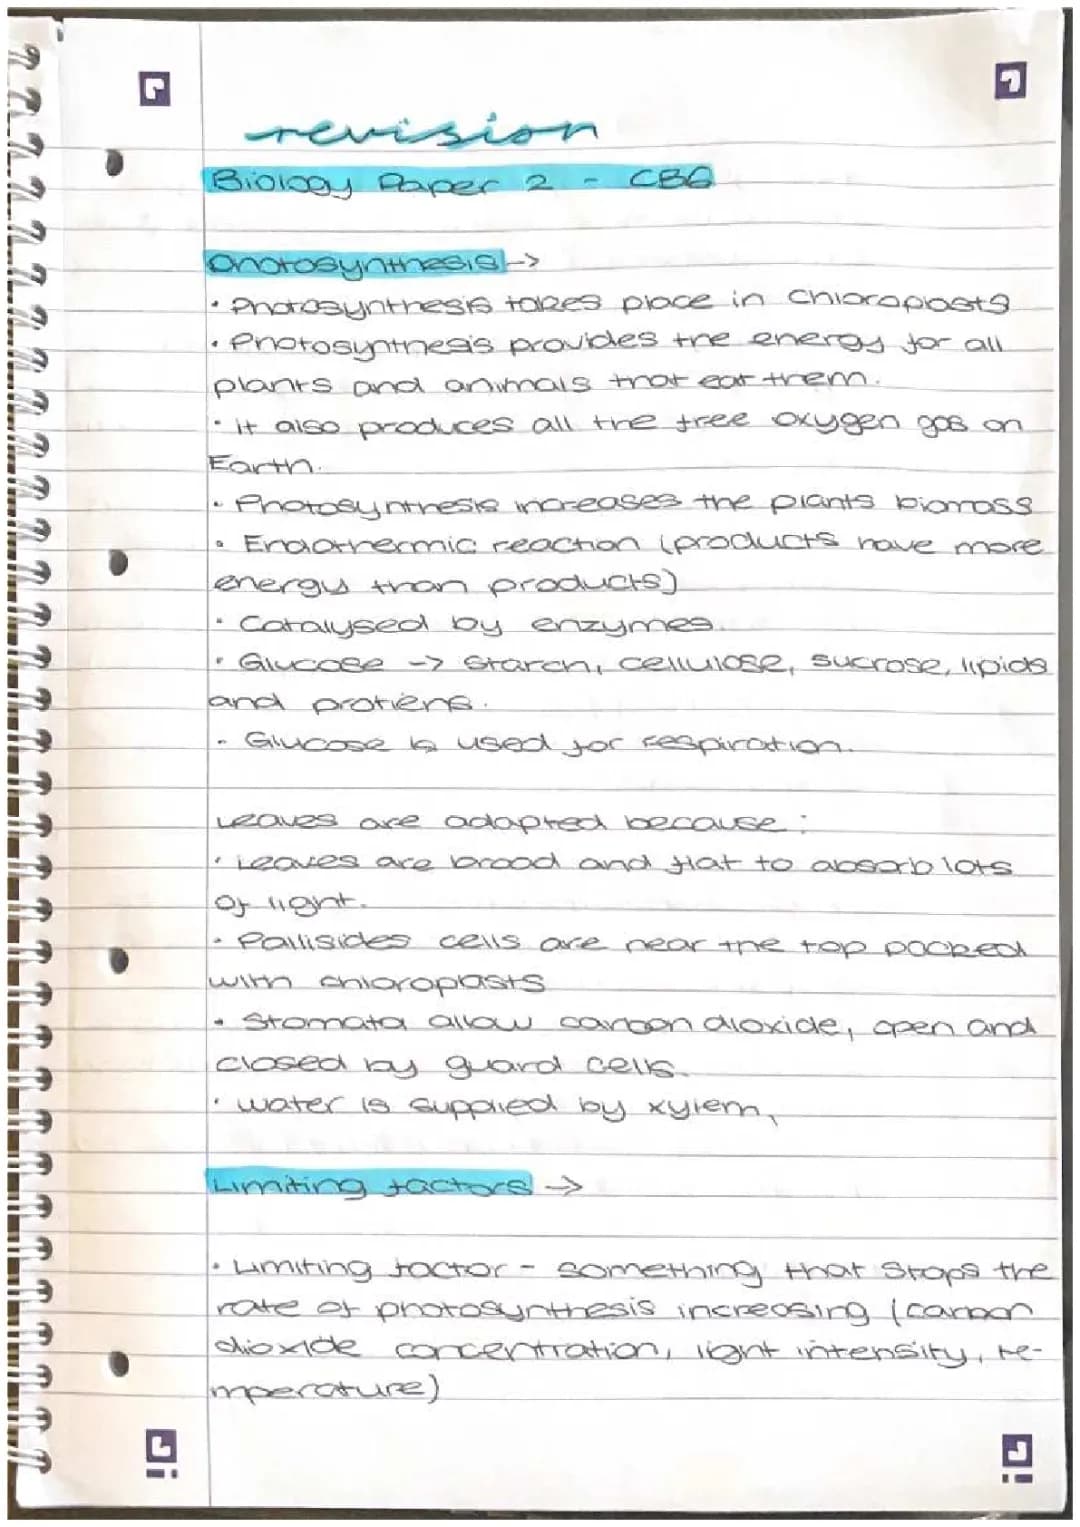 revision
Biology Paper 2 - CB6
Photosynthesis ->
• Photosynthesis takes place in chloroplasts
• Photosynthesis provides the energy for all
plants and animals that eat them.
• It also produces all the free oxygen gas on
Earth.
• Photosynthesis increases the plants biomass
• Endothermic reaction (products have more
energy than products)
• Catalysed by enzymes.
• Glucose -> starch, cellulose, sucrose, lipids
and protiens.
• Glucose is used for respiration.
Leaves are adapted because:
• Leaves are broad and flat to absorb lots
of light.
• Pallisides cells are near the top packed
with chloroplasts
• Stomata allow carbon dioxide, open and
closed by guard cells.
• Water is supplied by xylem,
Limiting factors ->
• Limiting factor - something that stops the
rate of photosynthesis increasing (carbon
dioxide concentration, light intensity, te-
mperature)